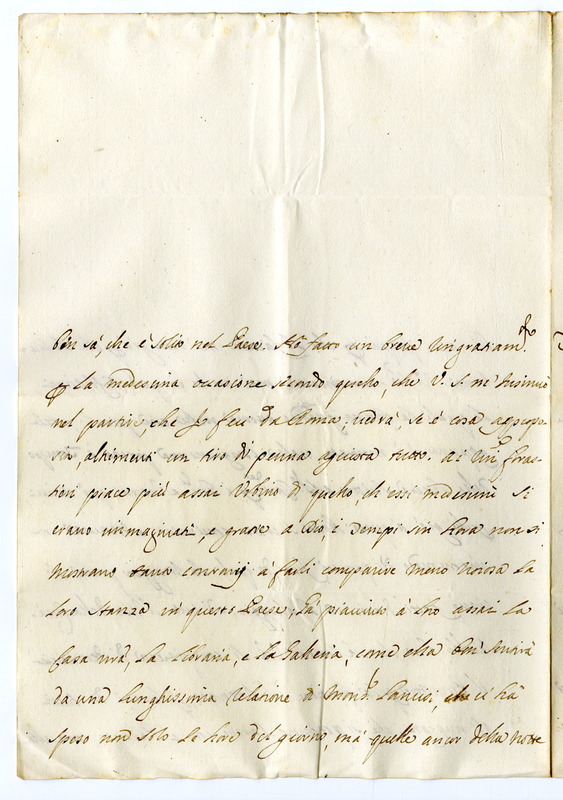 ben sà, che è solio nel Paese. Ho fatto un breve ringratiam.to
p la medesima occasione secondo quello, che V. S. m'insinuò
nel partire, che Io feci da Roma; vedrà, se è cosa apropo-
sito, altrimenti un tiro di penna agiusta tutto. Ai foras-
tieri piace più assai Urbino di quello, ch'essi medesimi si
erano immaginati, e gratie a Dio, i tempi sin hora non si
mostrano contrarij à farli comparire meno noiosa la
loro stanza in questo Paese; Gli piacciuta à assai la
Casa nrã, la libraria, e la Galleria, come ella ben sentirà
da una lunghissima relatione di Mons.r Lancisi, che ci hà
speso non solo le hore del giorno, mà quelle ancor della notte